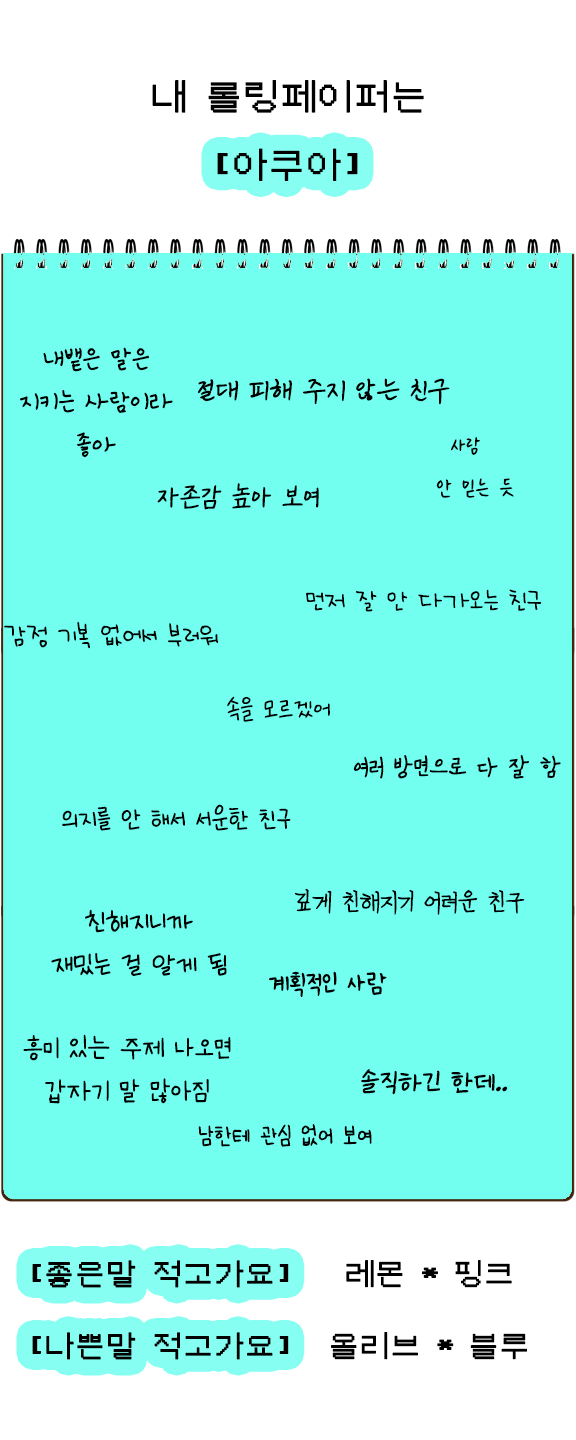 내 롤링페이퍼는
[아쿠아]
내뱉은 말은
지키는 사람이라
좋아
절대 피해 주지 않는 친구
사람
안 믿는 듯
자존감 높아 보여
먼저 잘 안 다가오는 친구
감정 기복 없어서 부러워
속을 모르겠어
여러 방면으로 다 잘 함
의지를 안 해서 서운한 친구
깊게 친해지기 어려운 친구
친해지니까
재밌는 걸 알게 됨
계획적인 사람
흥미 있는 주제 나오면
갑자기 말 많아짐
솔직하긴 한데..
남한테 관심 없어 보여
[좋은말 적고가요] 레몬 * 핑크
[나쁜말 적고가요] 올리브 * 블루